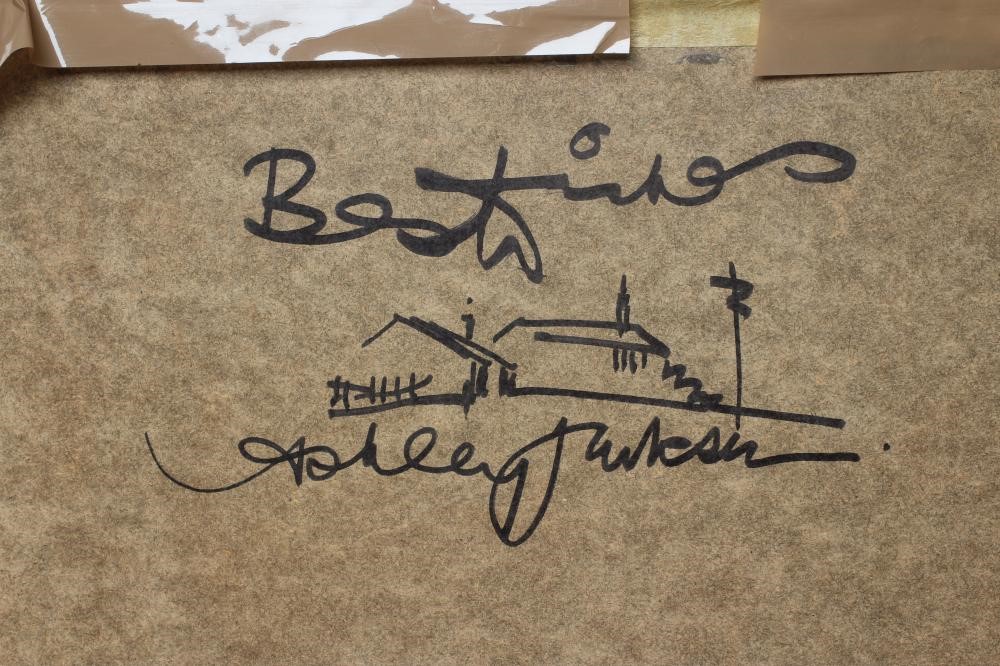 Best Wishes
Ashley Jackson